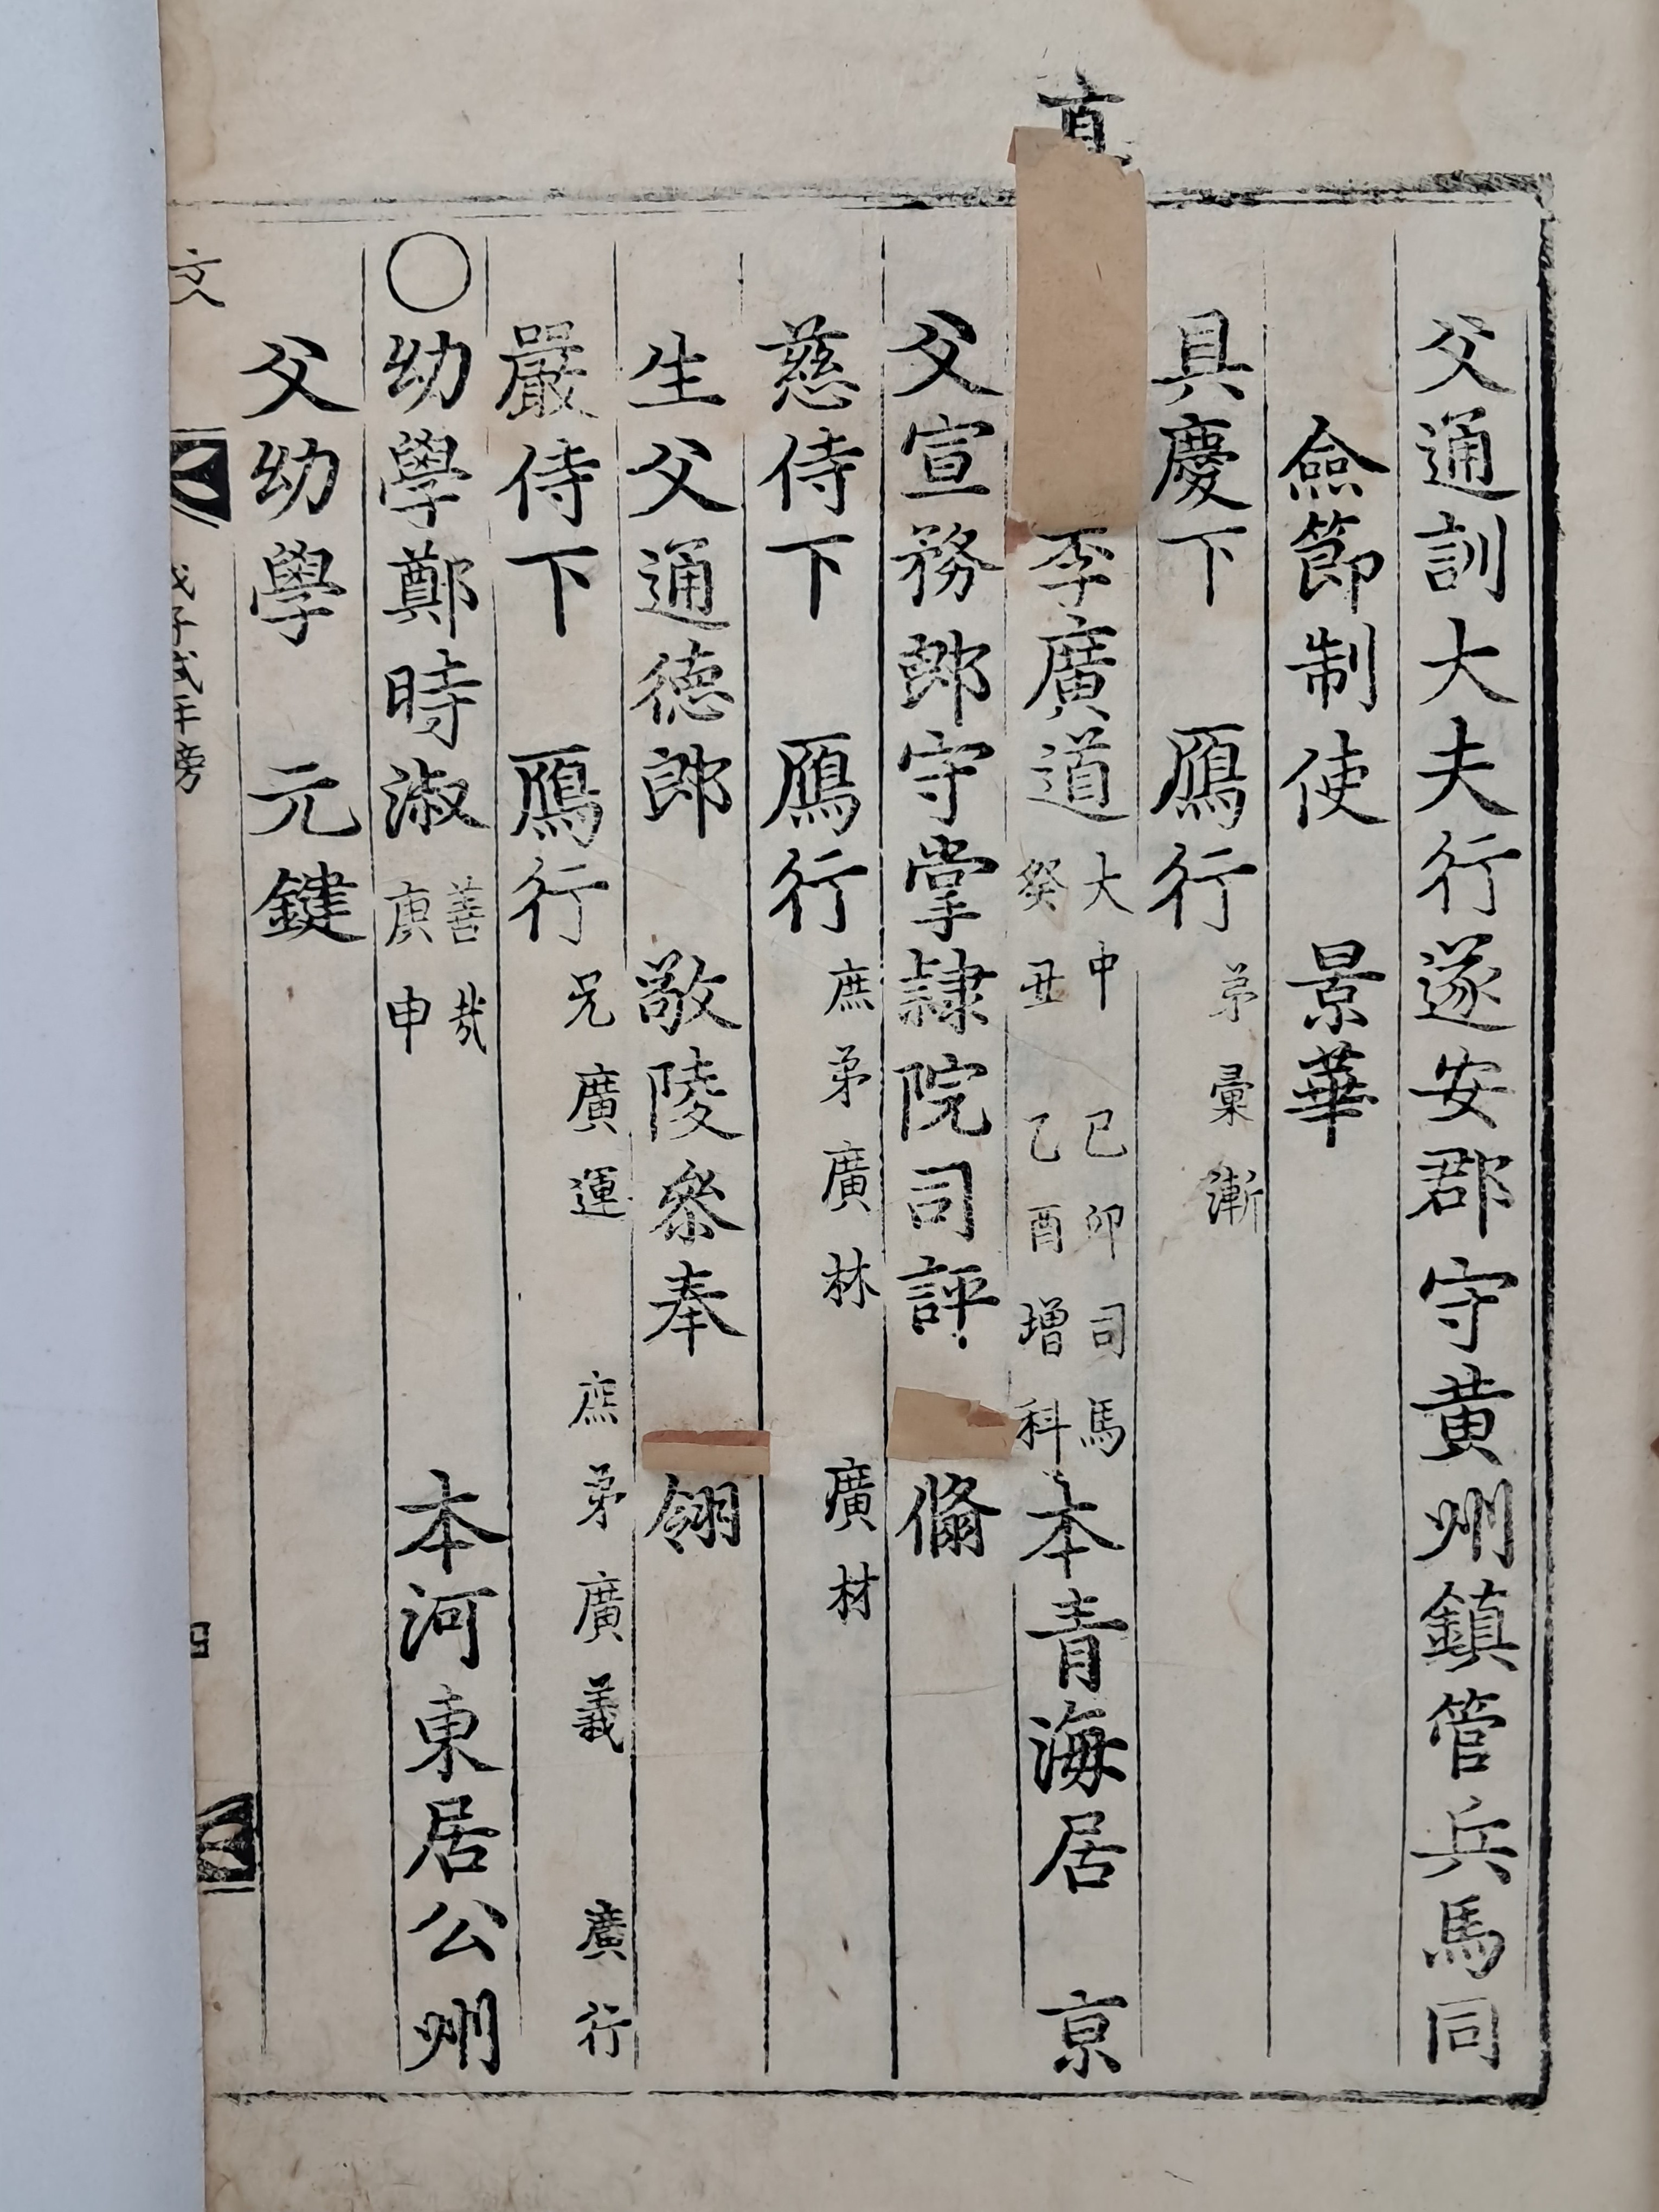 父通訓大夫行遂安郡守黄州鎮管兵馬同
僉節制使　景華
具慶下　鴈行 弟彙漸
李廣道 大中 癸丑 己卯司馬 乙酉增科 本青海居　京
父宣務郎守掌隷院司評　脩
慈侍下　鴈行 庶弟廣林　廣材
生父通德郎　敬陵參奉　翎
嚴侍下　鴈行 兄廣運　庶弟廣義　廣行
○幼學鄭時淑 善哉 庚申　本河東居公州
父幼學　元鍵
文
戊子式年榜
四